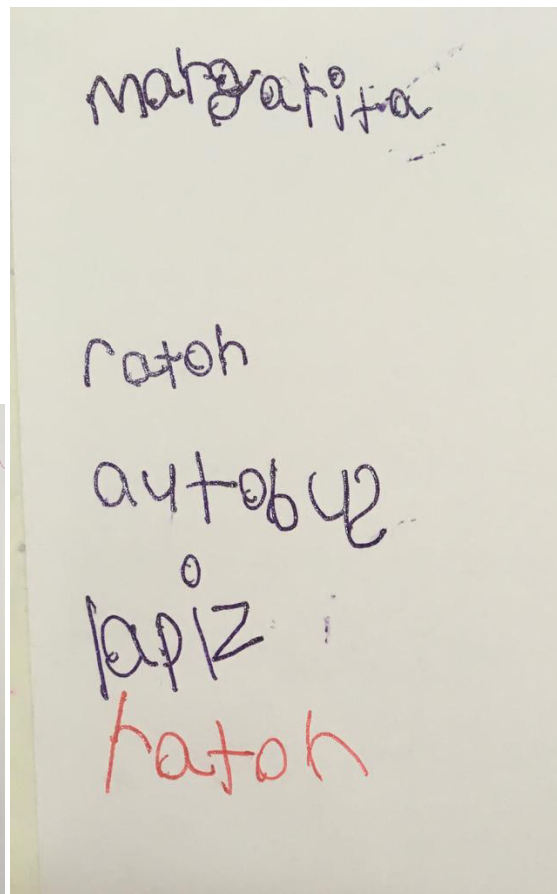 margarita
raton
autobus
lapiz
raton